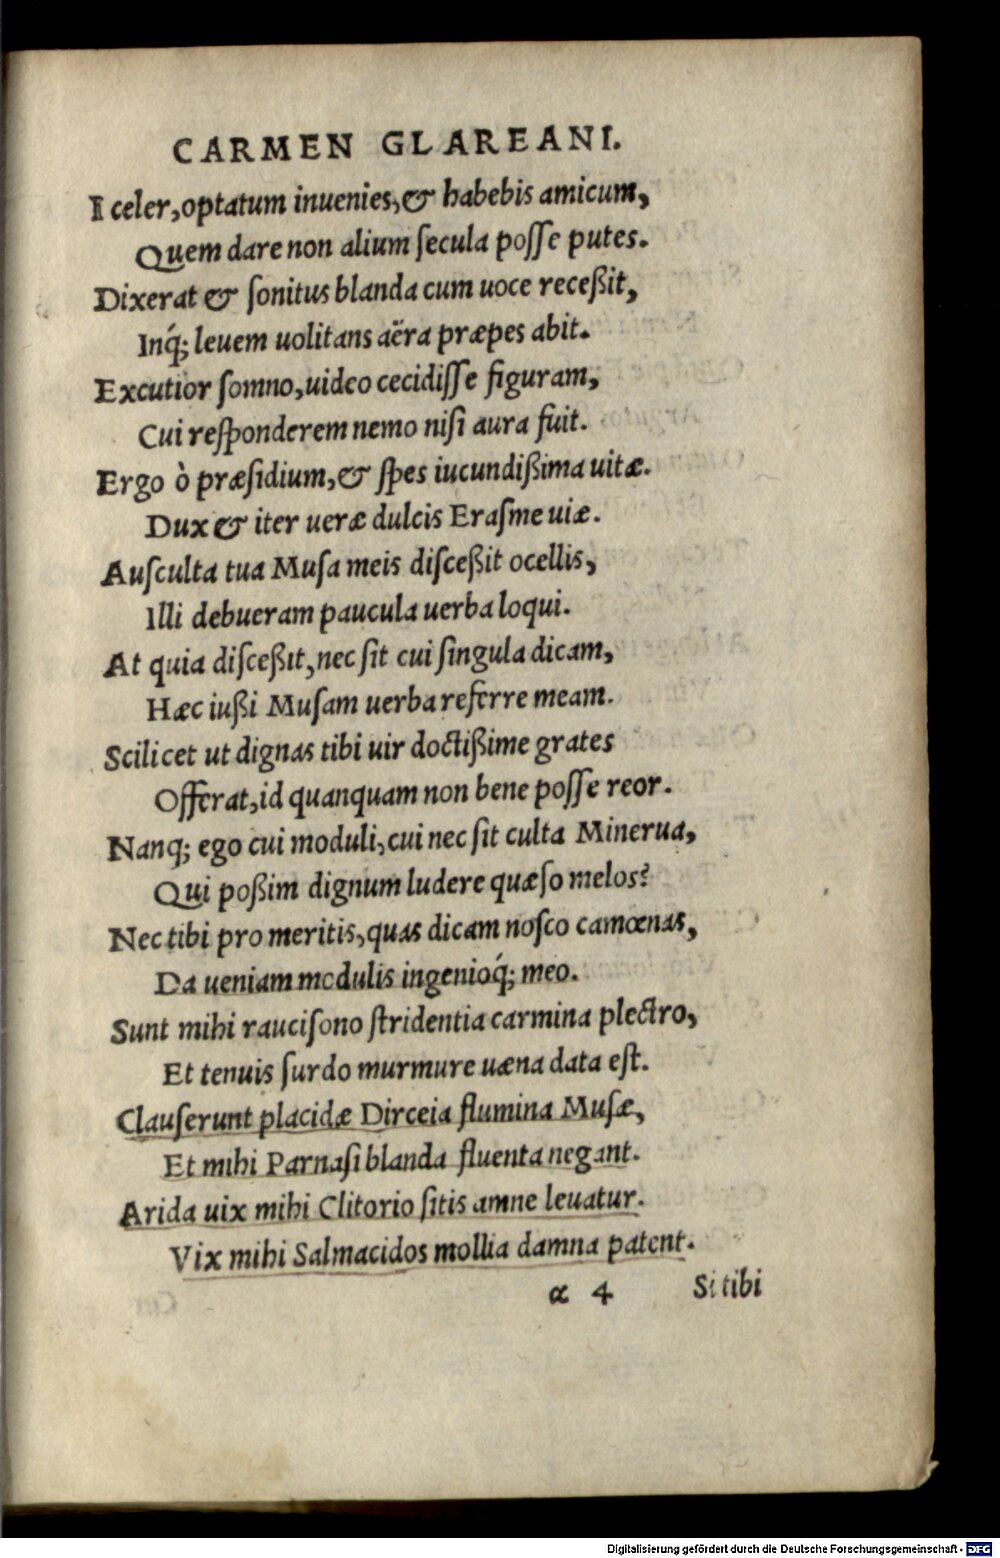 CARMEN GLAREANI.
I celer, optatum inuenies, & habebis amicum,
Quem dare non alium ſecula poſſe putes.
Dixerat & ſonitus blanda cum uoce receßit,
Inq́; leuem uolitans aëra præpes abit.
Excutior ſomno, uideo cecidiſſe figuram,
Cui reſponderem nemo niſi aura fuit.
Ergo ò præſidium, & ſpes iucundißima uitæ.
Dux & iter ueræ dulcis Eraſme uiæ.
Auſculta tua Muſa meis diſceßit ocellis,
Illi debueram paucula uerba loqui.
At quia diſceßit, nec ſit cui ſingula dicam,
Hæc iußi Muſam uerba referre meam.
Scilicet ut dignas tibi uir doctißime grates
Offerat, id quanquam non bene poſſe reor.
Nanq; ego cui moduli, cui nec ſit culta Minerua,
Qui poßim dignum ludere quæſo melos?
Nec tibi pro meritis, quas dicam noſco camœnas,
Da ueniam modulis ingenioq́; meo.
Sunt mihi rauciſono ſtridentia carmina plectro,
Et tenuis ſurdo murmure uæna data eſt.
Clauſerunt placidæ Dirceia flumina Muſæ,
Et mihi Parnaſi blanda fluenta negant.
Arida uix mihi Clitorio ſitis amne leuatur.
Vix mihi Salmacidos mollia damna patent.
α 4 Si tibi
Digitalisierung gefördert durch die Deutsche Forschungsgemeinschaft - DFG